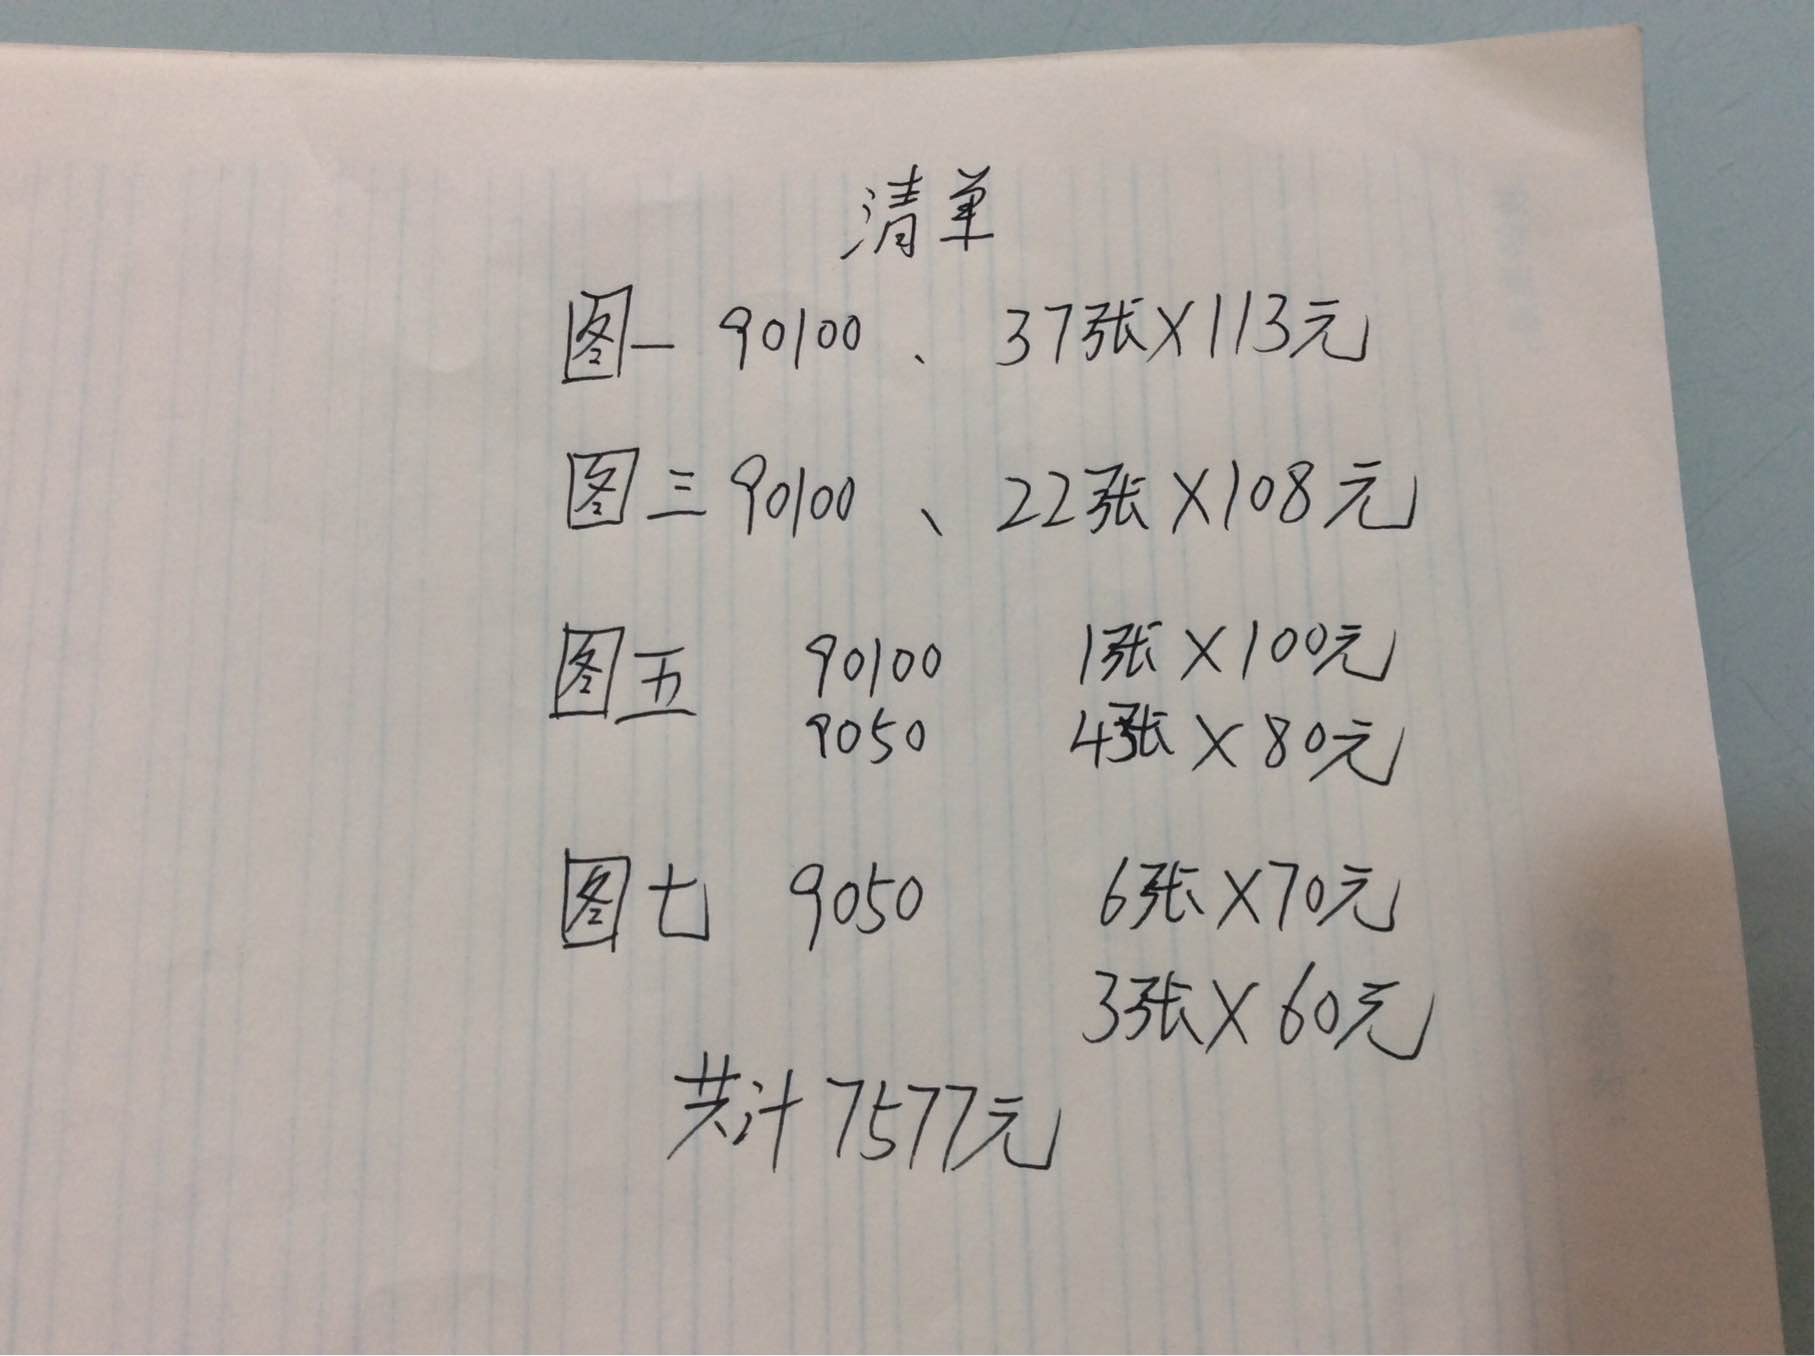 清单
图一 90100、37张×113元
图三 90100、22张×108元
图五 90100 1张×100元
9050 4张×80元
图七 9050 6张×70元
3张×60元
共计7577元